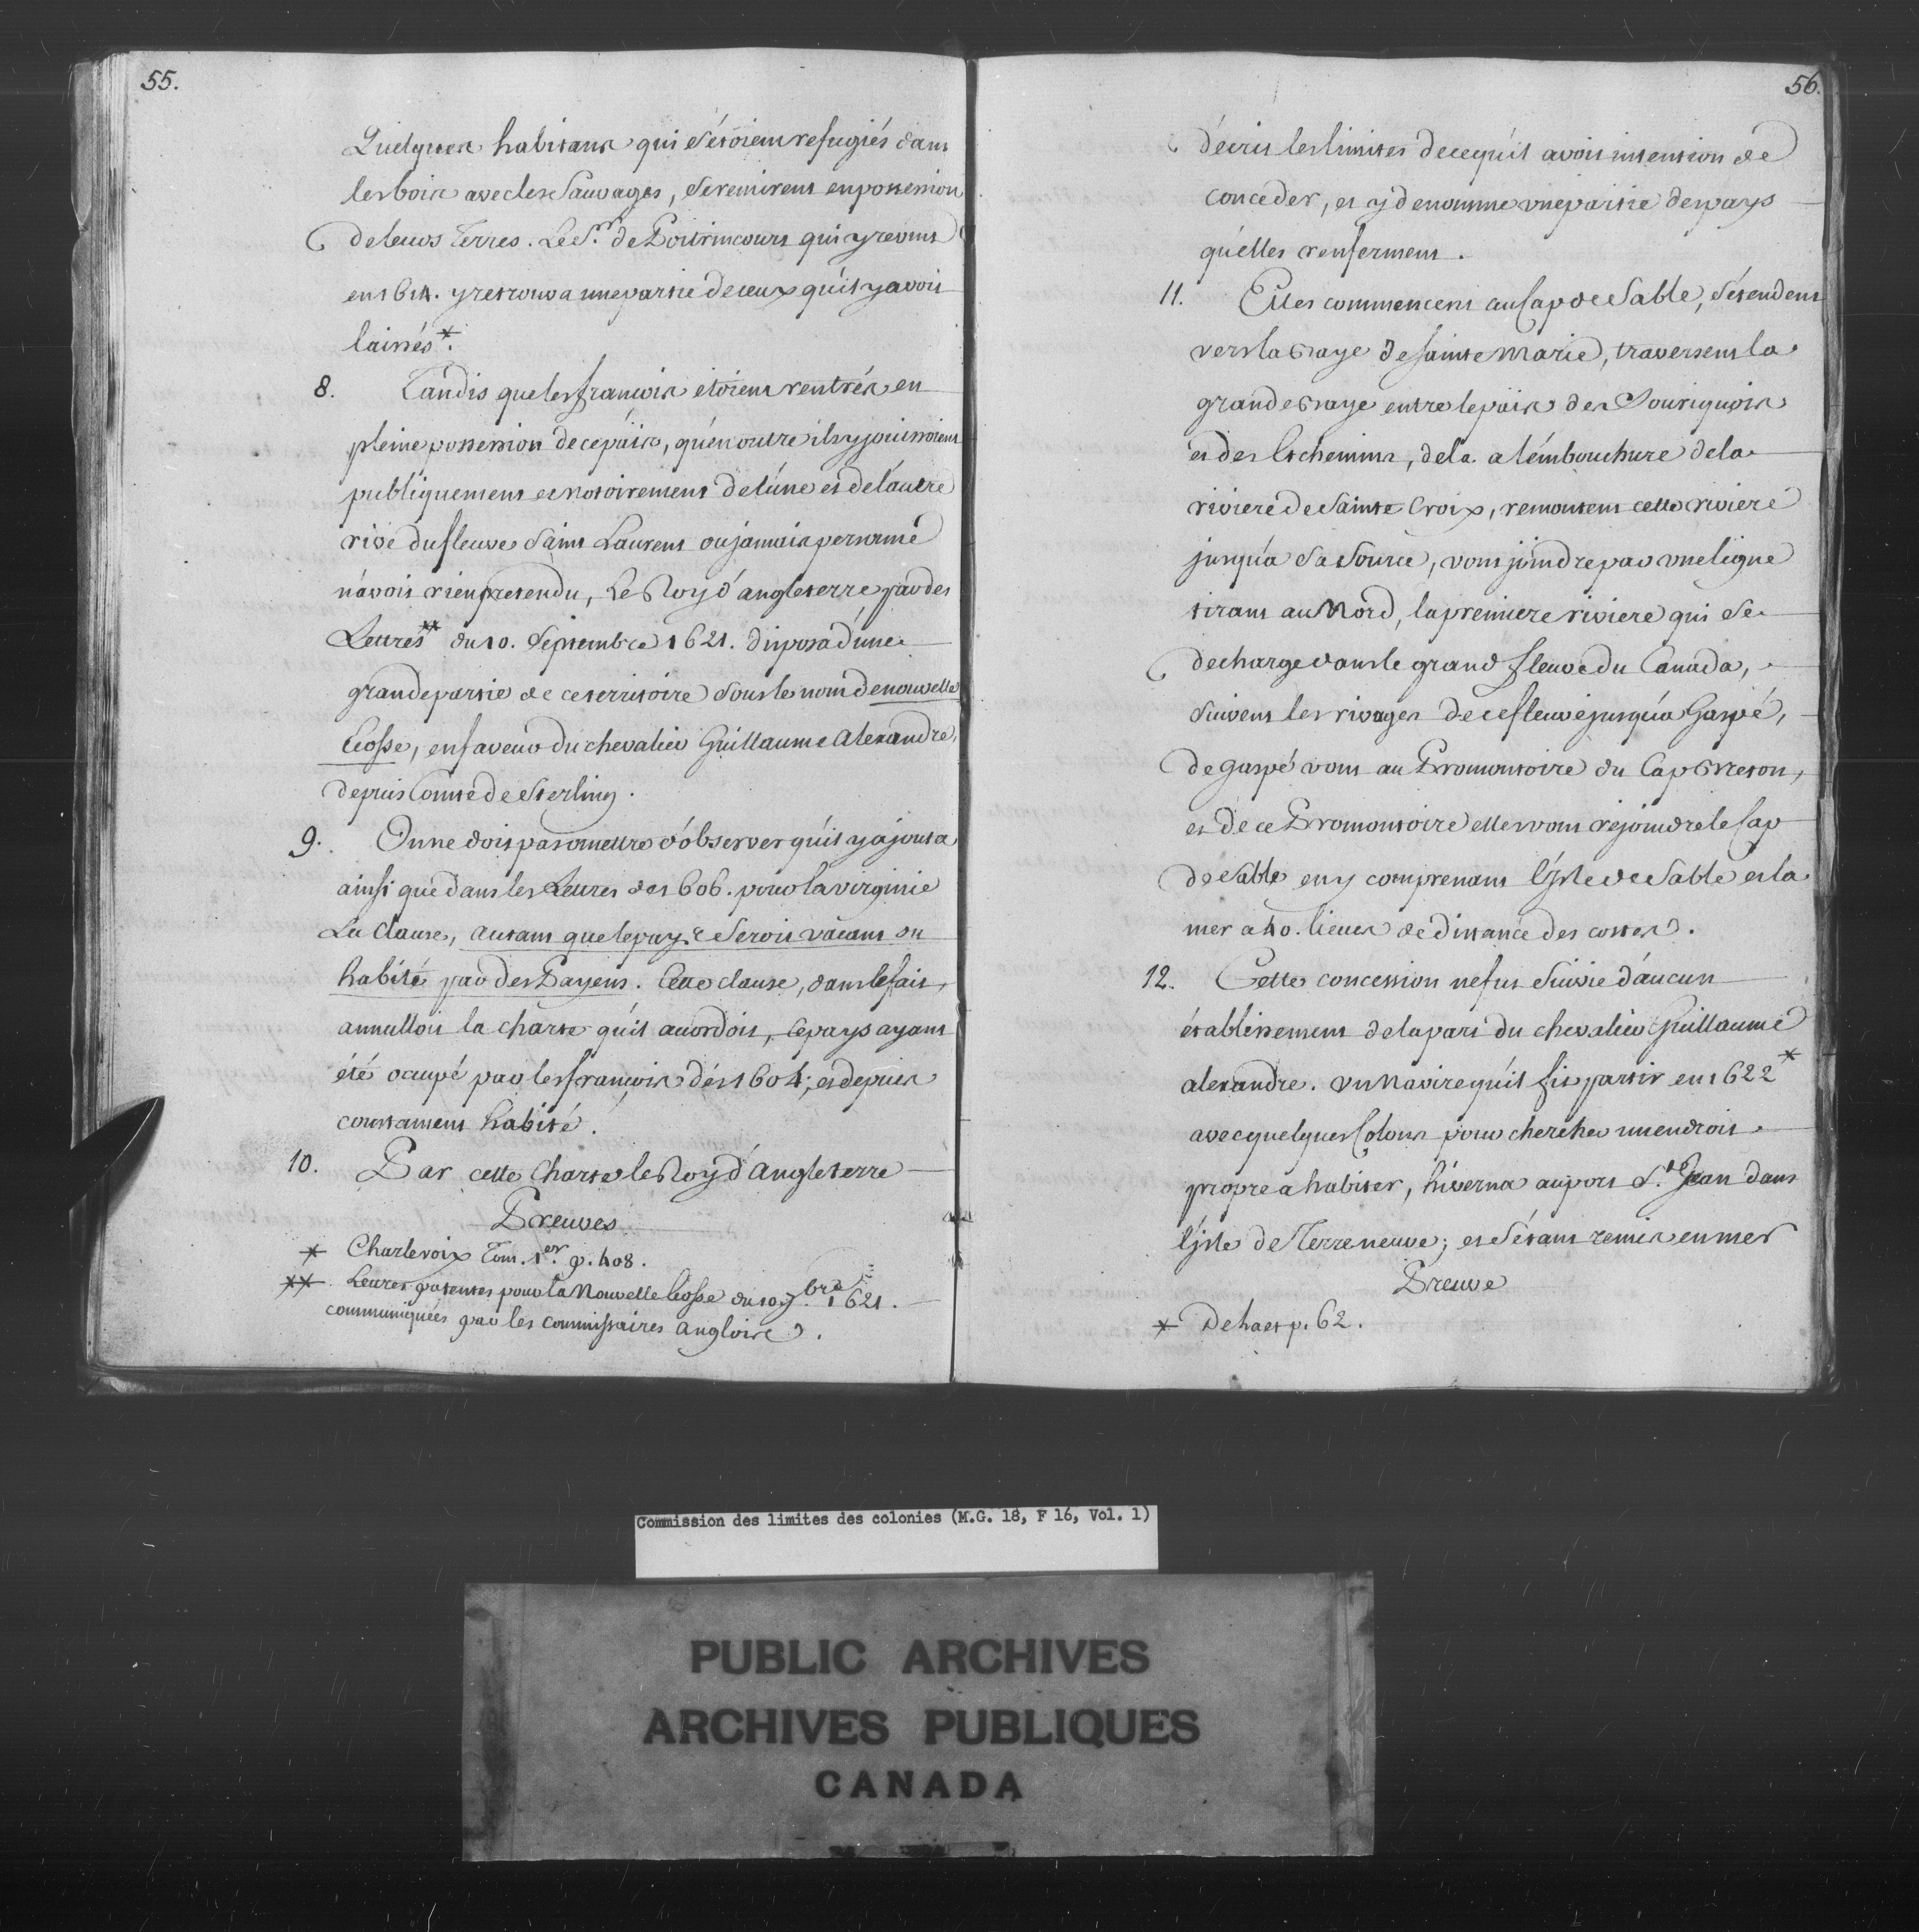 55.
Quelques habitans qui s'étoient refugiés dans
les bois avec les Sauvages, se remirent en possession
de leurs Terres. Le Sr. de Poitrincourt qui y revint
en 1614. y retrouva une partie de ceux qu'il y avoit
laissés*.
8. Tandis que les françois etoient rentrés en
pleine possession de ce païs, qu'en outre ils y jouissoient
publiquement et notoirement de l'une et de l'autre
rive du fleuve Saint Laurent où jamais personne
n'avoit rien pretendu, Le Roy d'angleterre par des
Lettres** du 10. Septembre 1621. disposa d'une
grande partie de ce territoire sous le nom de nouvelle
Ecosse, en faveur du chevalier Guillaume Alexandre,
depuis Comte de Sterling.
9. On ne doit pas omettre d'observer qu'il y ajouta
ainsi que dans les Lettres de 1606. pour la virginie
La Clause, autant que le pays seroit vacant ou
habité par des Payens. Cette clause, dans le fait,
annulloit la charte qu'il accordoit, le pays ayant
été occupé par les françois dès 1604; et depuis
constament habité.
10. Par cette Charte le Roy d'Angleterre
Preuves
* Charlevoix Tom. 1er. p. 408.
** Lettres patentes pour la Nouvelle Ecosse du 10 7bre. 1621.
communiquées par les Commissaires Anglois.
56.
décrit les limites de ce qu'il avoit intention de
conceder, et y denomme une partie des pays
qu'elles renferment.
11. Elles commencent au Cap de Sable, s'étendent
vers la Baye de Sainte Marie, traversent la
grande Baye entre le païs des Souriquois
et des Etchemins, de la a l'émbouchure de la
riviere de Sainte Croix, remontent cette riviere
jusqu'a sa source, vont joindre par une ligne
tirant au Nord, la premiere riviere qui se
decharge dans le grand fleuve du Canada,
suivent les rivages de ce fleuve jusqu'a Gaspé,
de Gaspé vont au Promontoire du Cap Breton,
et de ce Promontoire elles vont rejoindre le Cap
de Sable en y comprenant l'Isle de Sable et la
mer a 40. lieues de distance des costes.
12. Cette concession ne fut suivie d'aucun
établissement de la part du chevalier Guillaume
alexandre. un Navire qu'il fit partir en 1622*
avec quelques Colons pour chercher un endroit
propre a habiter, hiverna au port St. Jean dans
l'jsle de Terre neuve; et s'étant remis en mer
Preuve
* De haet p. 62.
Commission des limites des colonies (M.G. 18, F 16, Vol. 1)
PUBLIC ARCHIVES
ARCHIVES PUBLIQUES
CANADA